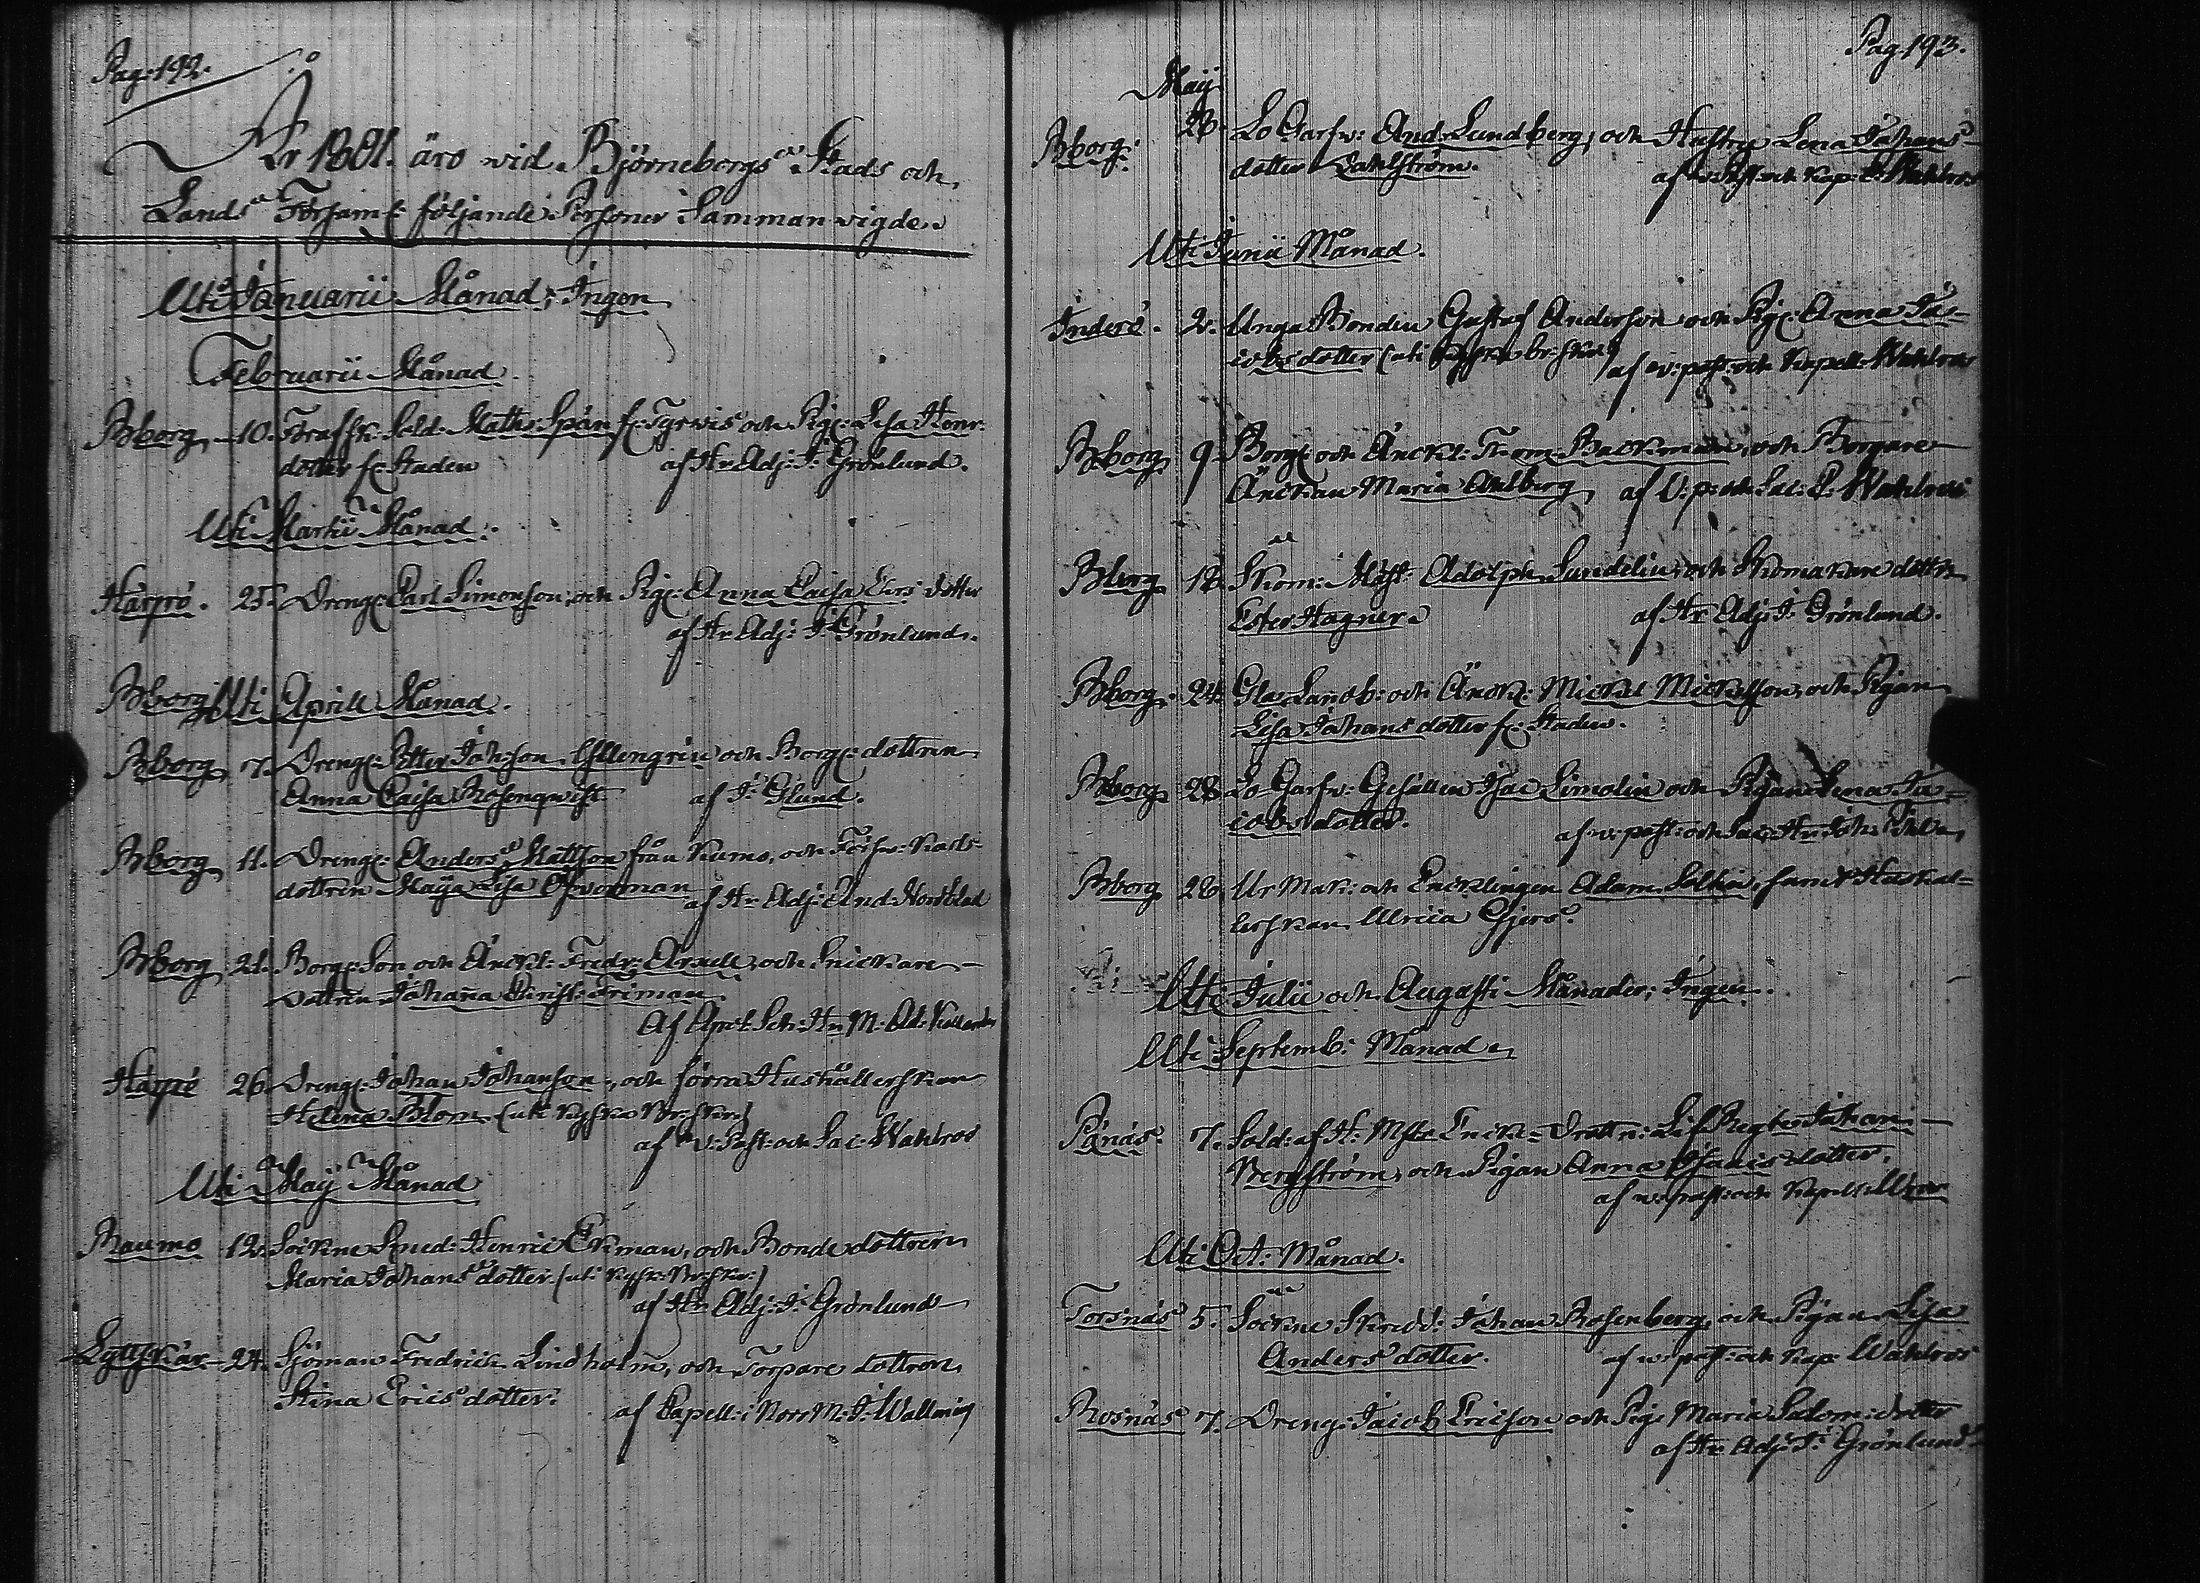 Pag: 192.
År 1801. äro wid Björneborgs Stads och
Lands Församl: följande Personer Sammanvigde.
Uti Januarii Månad; Ingen
Februarii Månad.
Bborg 10. Sold. Matts Spån fr: och Pig: Lisa Henr:
dotter fr: Staden af Hr Adj: J: Grönlund.
Uti Martii Månad:
Harjro. 25. Dreng: Carl Simonsson, och Pig: Anna Caisa Ers dotter
af Hr Adj: J: Grönlund.
Bborg Uti Aprill Månad.
Bborg 7. Dreng: Petter Johsson och Borg: dottren
Anna Caisa Rosenqwist af J: Glund.
Bborg 11. Dreng: Anders Mattsson från Kumo, och
dottren Maja Lisa af Hr Adj: And: Nordblad
Bborg 21. Borg: Son och Änckl: Fredr: Arnell, och Snickare
dottren Johanna Christ: Friman.
Af Apol: Sch: Hr M: Ad:
Harjro 26. Dreng: Johan Johansson, och förra Hushållerskan
Helena Blom
af V: Past: och Sac: Wahlros
Uti Maij Månad
Raumo 12. Sockne Smed: Henric Ekman, och Bonde dottren
Maria Johans dotter
af Hr Adj: J: Grönlund
Lyttskär 24. Sjöman Fredrich Lindholm, och Torpare dottren
Stina Erics dotter. af Capell: i Norr M: J: Wallenius
Pag. 193.
Maij
Bborg: 28. Lo Garfw: And: Lundberg, och Hustru Lena Johans
dotter Dahlström. af v: Past: och Kap: E: Wahlros
Uti Junii Månad.
Inderö. 2. Unga Bonden Gustaf Andersson och Pig: Anna Ja=
cobs dotter af v: past: och Kapell: Wahlros
Bborg 9. Borg: och Änckl: From Backman, och Borgare
Änckan Maria Ahlberg af V: p: och Sac: E: Wahlros
Bborg 18. Skom: Mäst: Adolph Sundelin, och Skomakare dottr:
Ester Hagner af Hr Adj: J: Grönlund.
Bborg. 24. och Änckl: Mickel Mickelsson, och Pigan
Lisa Johans dotter fr: Staden.
Bborg 28. Lo Garfw: Gesällen Isac Limolin och Pigan Lena Ja=
cobs dotter. af v: past: och Sac: Hr Joh:
Bborg 28. Ur Mak: och Encklingen Adam Soltin, samt Hushål=
lerskan Ulrica Gjers.
Uti Julii och Augusti Månader; Ingen.
Uti Septemb: Månad
Pånäs. 7. Sold: af H: Drottn: Lif Regte Johan
Bergström, och Pigan Anna Isaacs dotter.
af v: past: och Kapell:
Uti Oct: Månad.
Torsnäs 5. Sockne Skredd: Johan Rosenberg, och Pigan Lisa
Anders dotter. af v: past: och Kap: Wahlros
Rosnäs 7. Dreng: Jacob Ericsson och Pig: Maria Salom: dotter
af Hr Adj: J: Grönlund